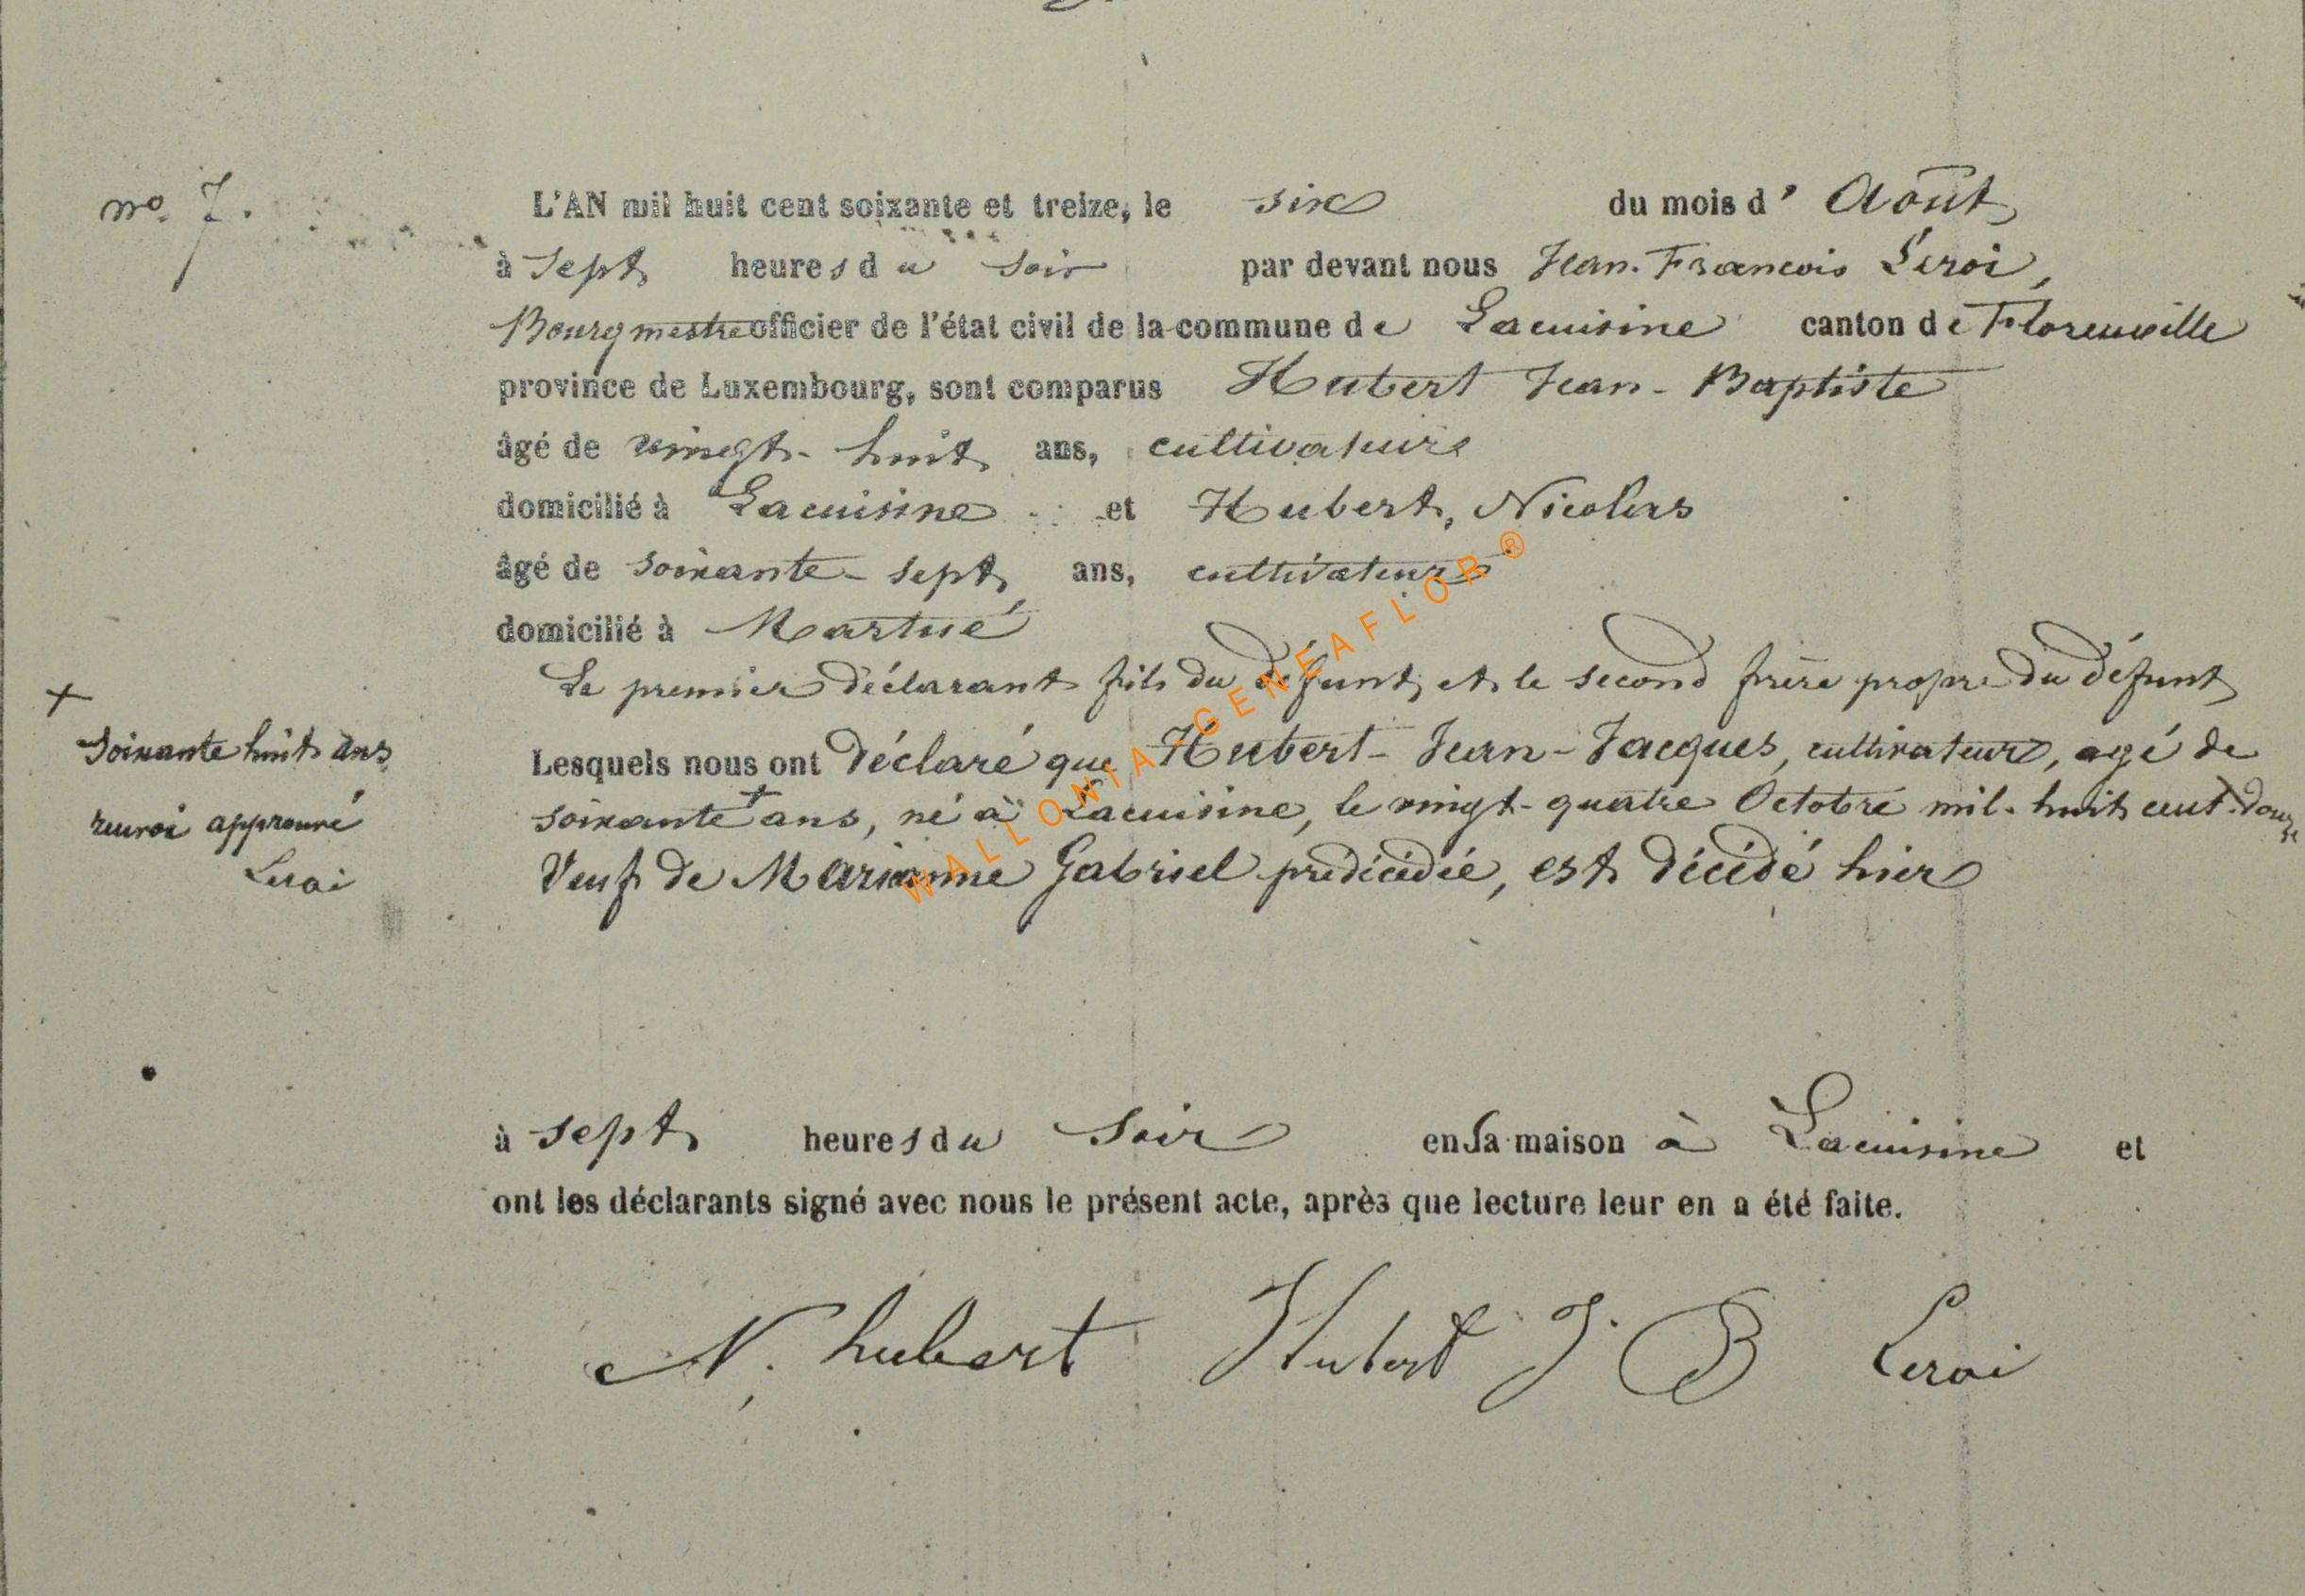 no. 7.
L'AN mil huit cent soixante et treize, le six du mois d' Août
à Sept heures du soir par devant nous Jean-Francois Leroi,
Bourgmestre officier de l'état civil de la commune de Lacuisine canton de Florenville
province de Luxembourg, sont comparus Hubert Jean-Baptiste
âgé de vingt-huit ans, cultivateur
domicilié à Lacuisine et Hubert, Nicolas
âgé de soixante-sept ans, cultivateur
domicilié à Martué
Le premier déclarant fils du défunt, et le second frère propre du défunt
Lesquels nous ont déclaré que Hubert-Jean-Jacques, cultivateur, agé de
soixante + ans, né à Lacuisine, le vingt-quatre Octobre mil-huit cent-douze
Veuf de Marianne Gabriel prédécédée, est décédé hier
+
Soixante huit ans
renvoi approuvé
Leroi
à sept heures du Soir en sa maison à Lacuisine et
ont les déclarants signé avec nous le présent acte, après que lecture leur en a été faite.
N. hubert Hubert J. B Leroi
WALLONIA-GENEAFLOR ®